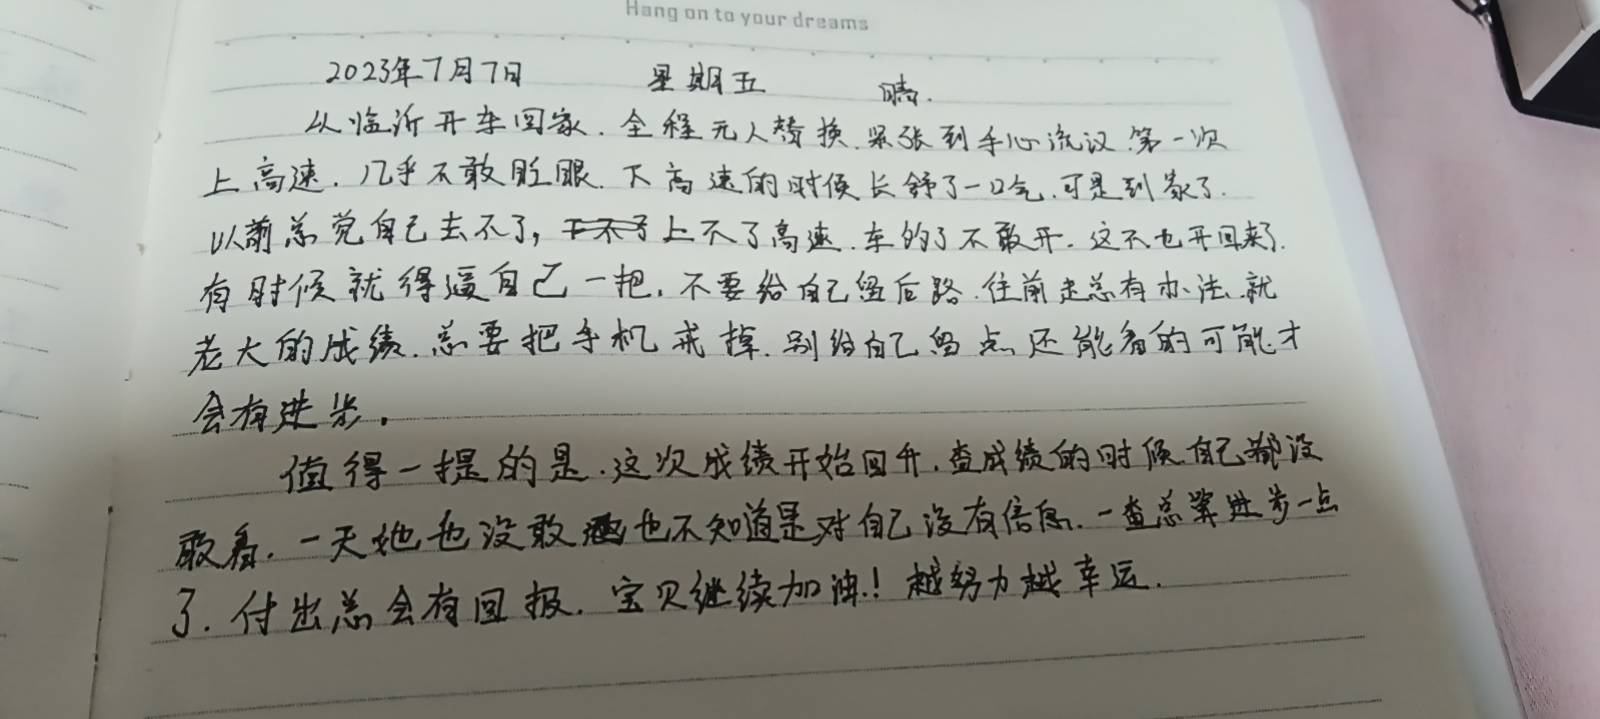 Hang on to your dreams
2023年7月7日 星期五 晴.
从临沂开车回家.全程无人替换.紧张到手心流汉.第一次
上高速.几乎不敢眨眼.下高速的时候长舒了一口气.可是到家了.
以前总觉自己去不了,上不了高速.车的了不敢开.这不也开回来了.
有时候就得逼自己一把.不要给自己留后路.往前走总有办法.就
老大的成绩.总要把手机戒掉.别给自己留点还能看的可能才
会有进步.
值得一提的是.这次成绩开始回升.查成绩的时候自己都没
敢看.一天她也没敢也不知道是对自己没有信息.一查总算进步一点
了.付出总会有回报.宝贝继续加油!越努力越幸运.